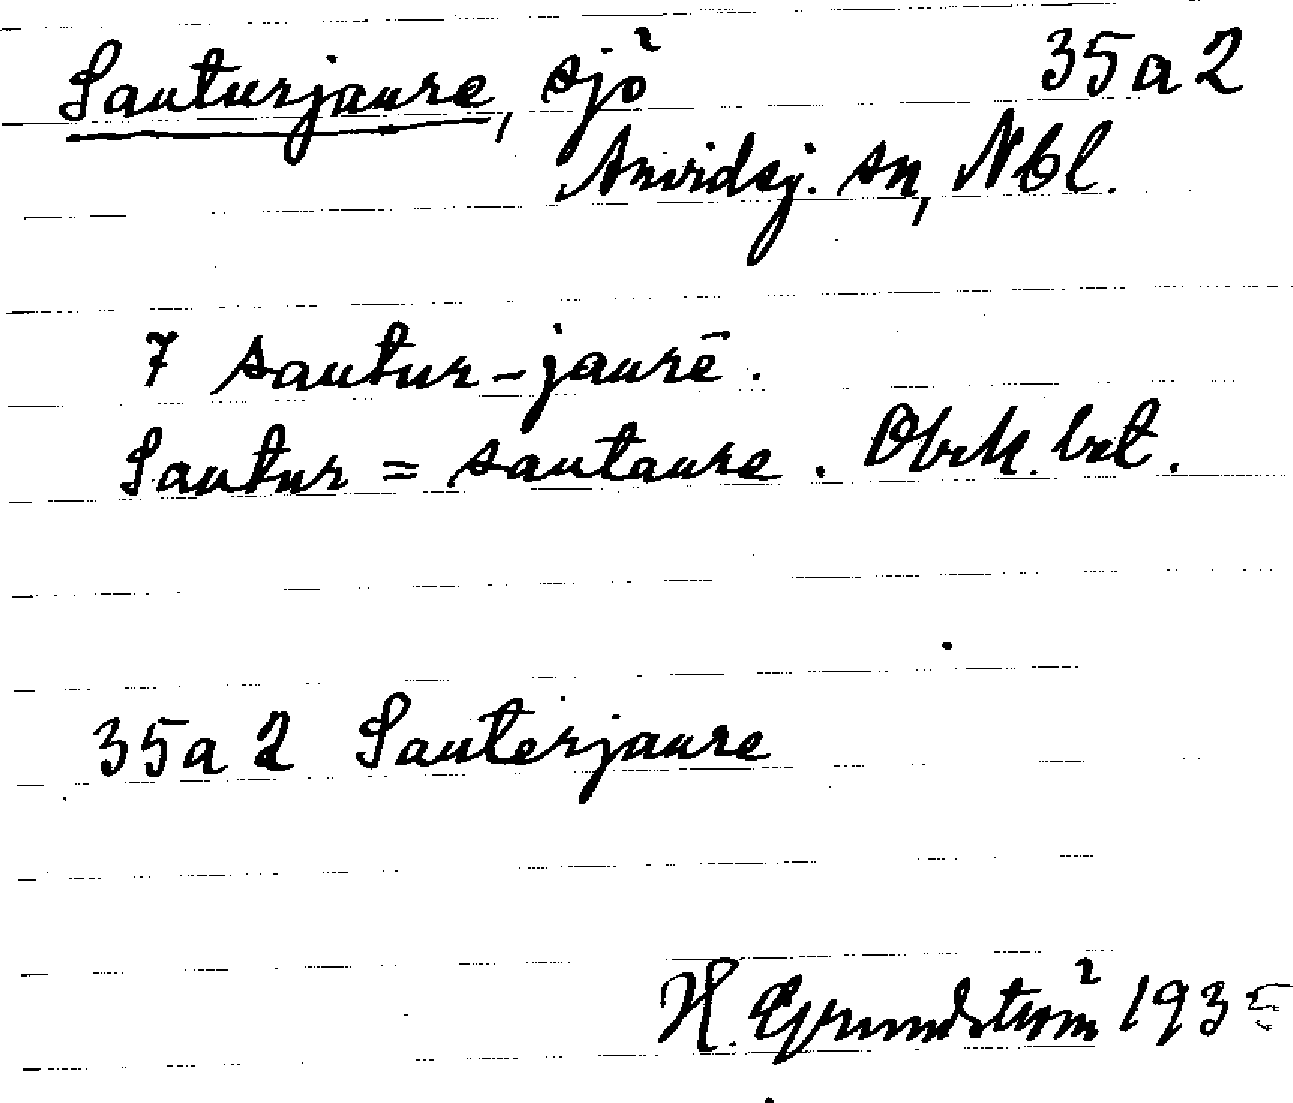 Sauturjaure, sjö 35a2
Arvidsj. sn, Nbl.
7 sautur-jaurē.
Sautur = sautaure. Obek. bet.
35a 2 Sauterjaure
H. Grundström 1935